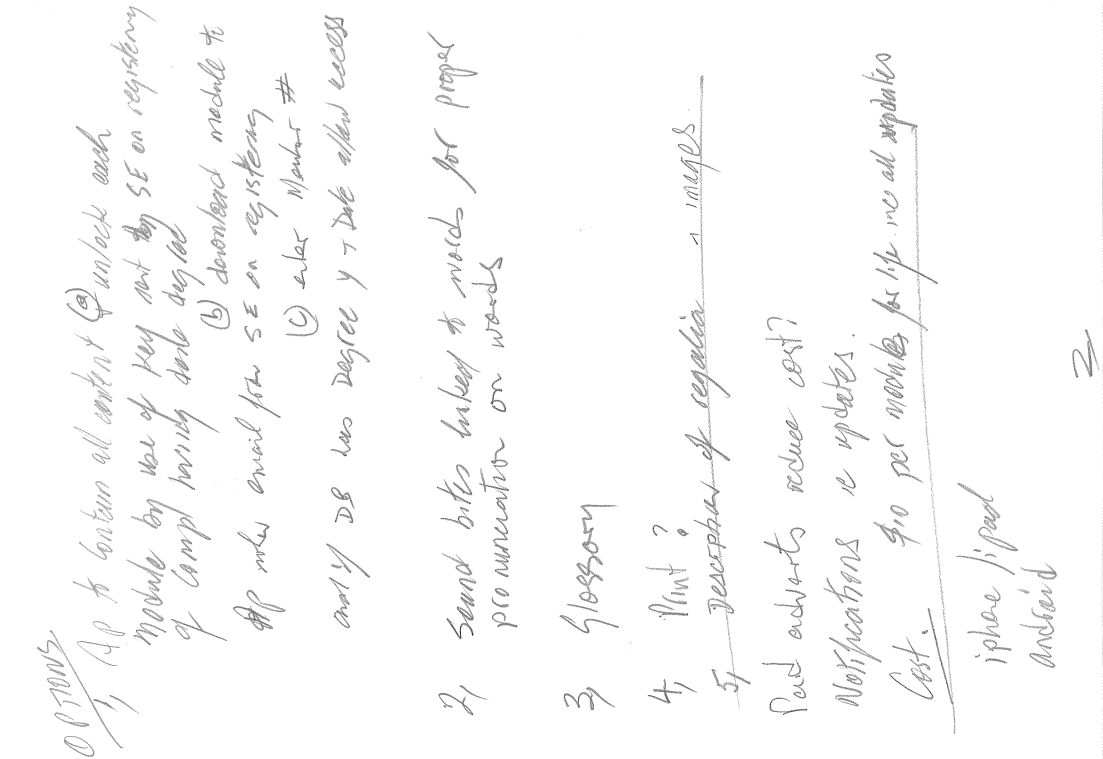 OPTIONS
1, Ap to contain all content (a) unlock each
Module by use of key sent by SE on registering
of Compl having done degree
(b) download module to
Ap when email from SE on registering
(c) enter Member #
only DB has Degree y + Date allow access
2, Sound bites linked to words for proper
pronunciation on words
3, Glossary
4, Print?
5, Description of regalia + images
Paid adverts reduce cost?
Notifications ie updates.
Cost. $10 per module for life inc all updates
iphone/ipad
android
2